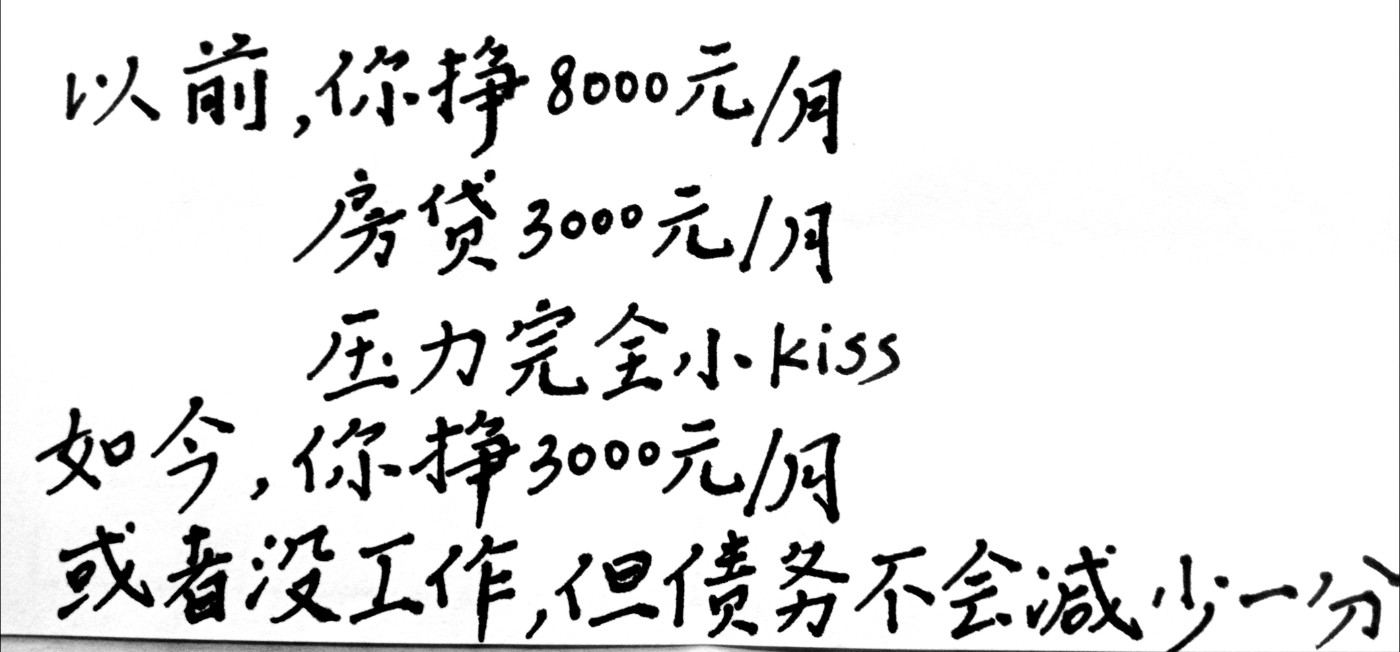 以前,你挣8000元/月
房贷3000元/月
压力完全小kiss
如今,你挣3000元/月
或者没工作,但债务不会减少一分